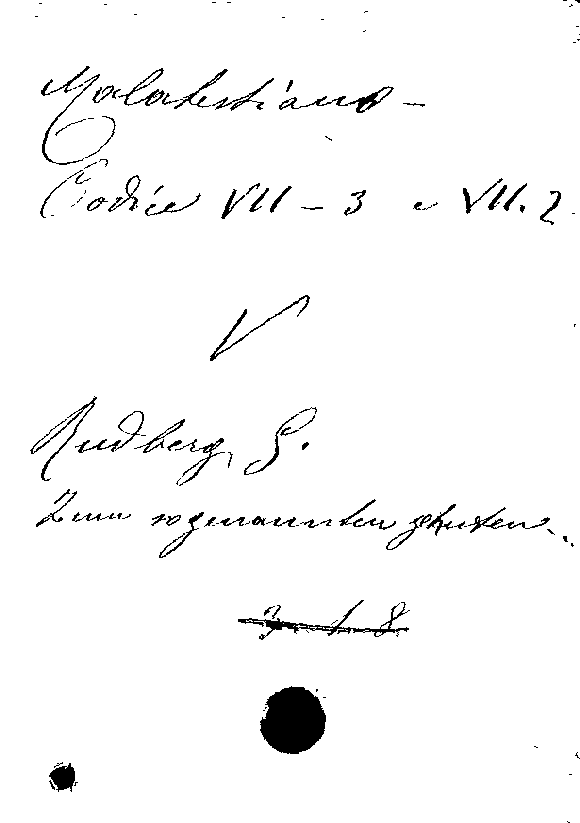 Malatestiano -
Codice VII - 3 e VII. 2
V
Rudberg, G.
Zum sogenannten zehnten...
3 1 8